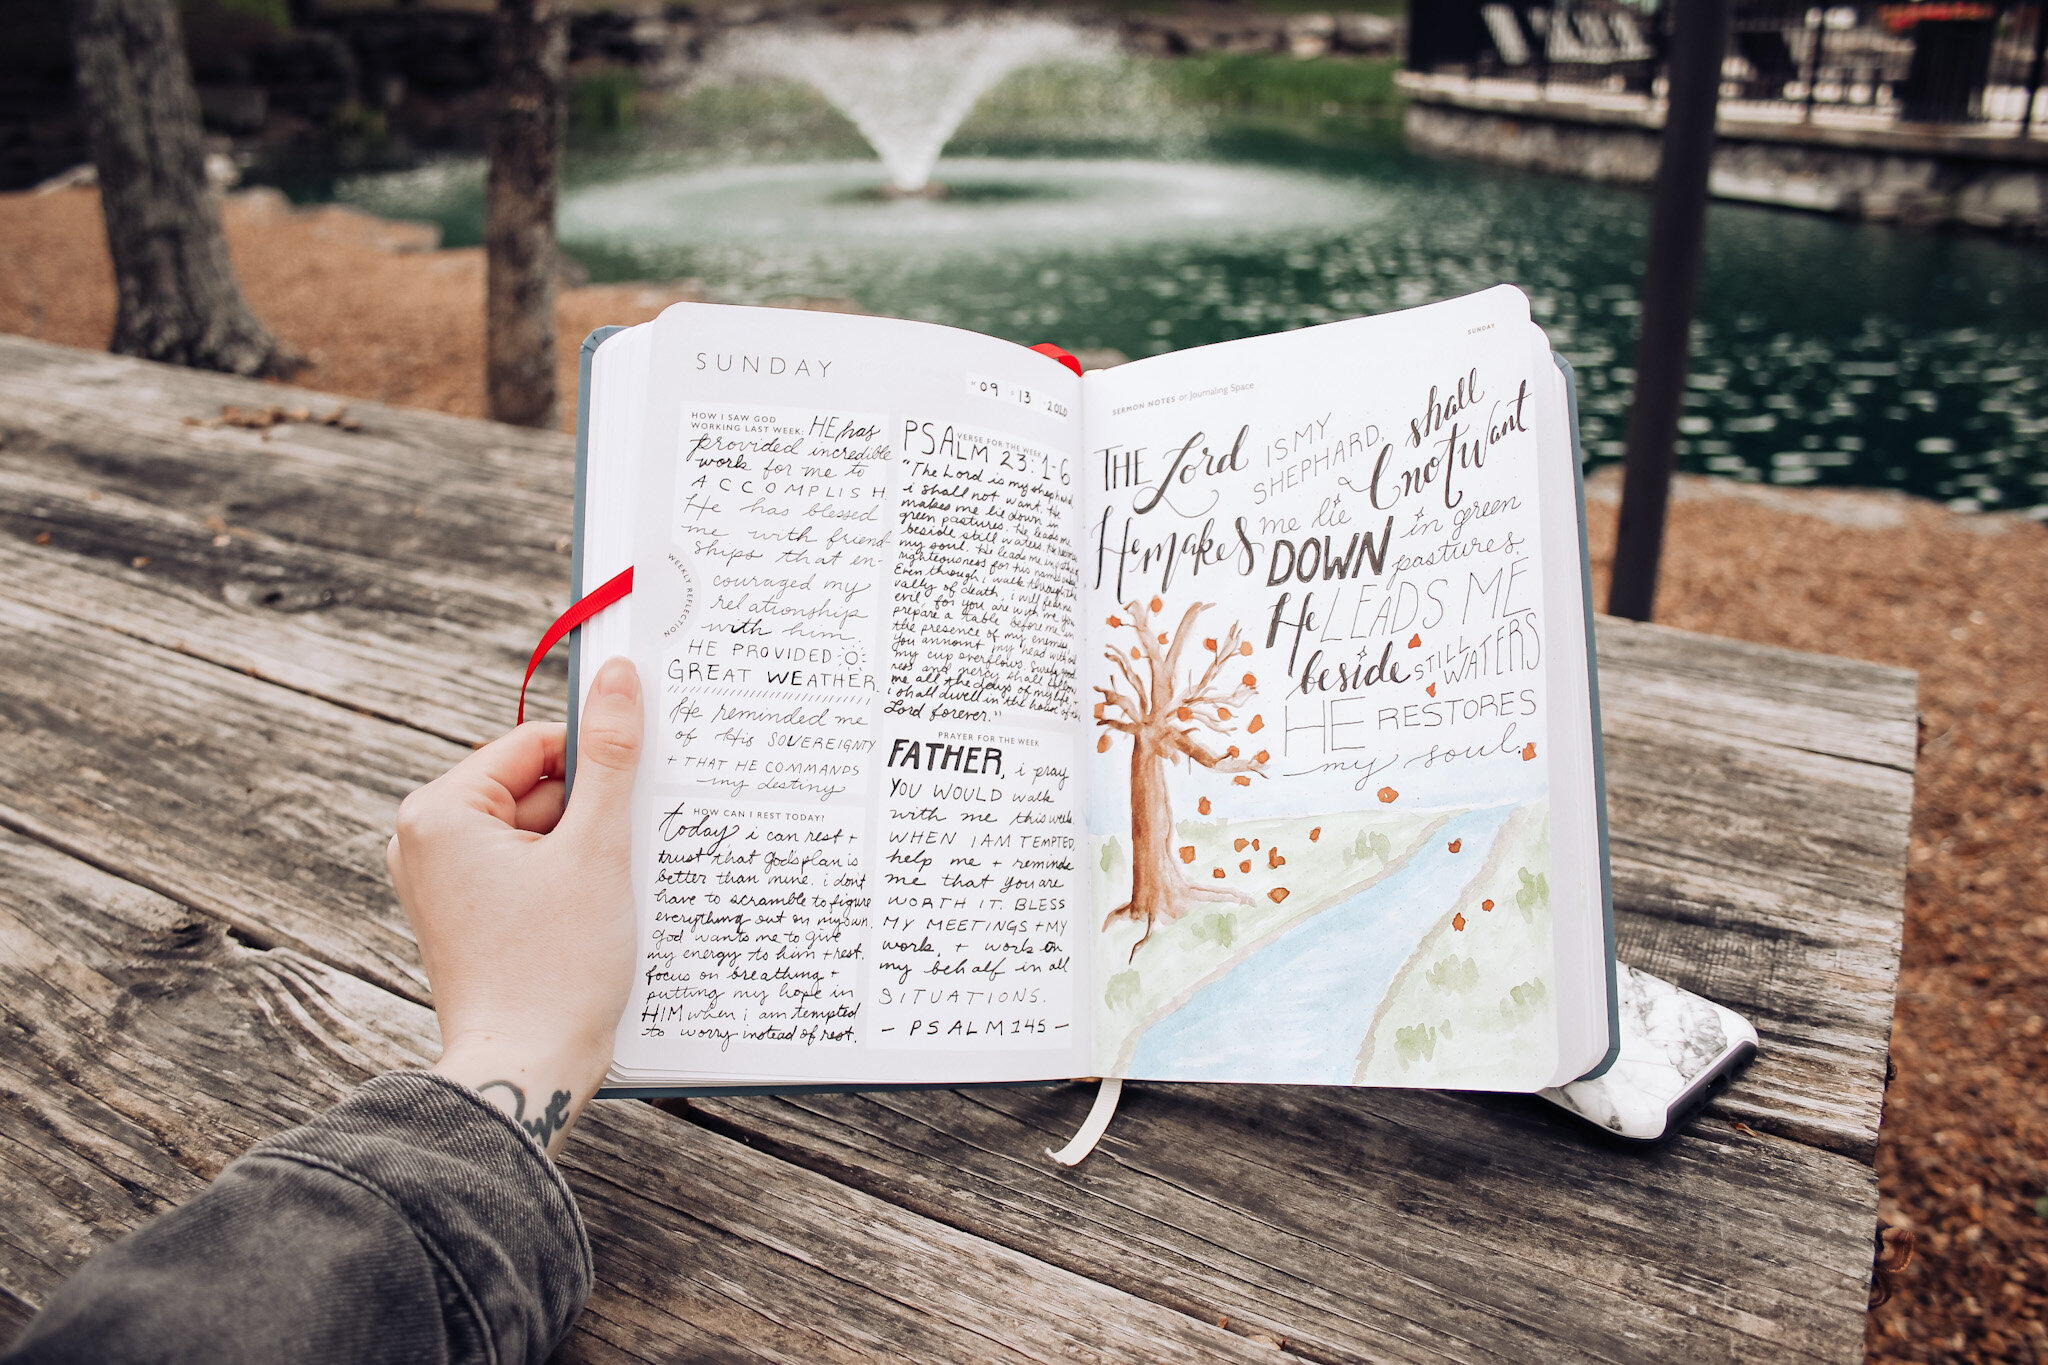 SUNDAY
09 13 2020
HOW I SAW GOD
WORKING LAST WEEK: HE has
provided incredible
work for me to
ACCOMPLISH.
He has blessed
me with friend-
ships that en-
couraged my
relationship
with him.
HE PROVIDED
GREAT WEATHER.
He reminded me
of His SOVEREIGNTY
+ THAT HE COMMANDS
my destiny
WEEKLY REFLECTION
HOW CAN I REST TODAY?
today, i can rest +
trust that God's plan is
better than mine. i don't
have to scramble to figure
everything out on my own.
God wants me to give
my energy to him + rest.
focus on breathing +
putting my hope in
HIM when i am tempted
to worry instead of rest.
VERSE FOR THE WEEK
PSALM 23:1-6
"The Lord is my shepherd,
i shall not want. He
makes me lie down in
green pastures. He leads me
beside still waters. He restores
my soul. He leads me in
righteousness for his name's
Even though i walk through the
valley of death, i will fear no
evil, for you are with me. You
prepare a table before me in
the presence of my enemies.
You annoint my head with oil
my cup overflows. Surely good-
ness and mercy shall follow
me all the days of my life, +
i shall dwell in the house of the
Lord forever."
PRAYER FOR THE WEEK
FATHER, i pray
YOU WOULD walk
with me this week.
WHEN I AM TEMPTED,
help me + reminde
me that you are
WORTH IT. BLESS
MY MEETINGS + MY
work, + work on
my behalf in all
SITUATIONS.
- PSALM 145 -
SUNDAY
SERMON NOTES or Journaling Space
THE Lord IS MY SHEPHARD, I shall not want
He makes me lie DOWN in green pastures.
He LEADS ME
beside STILL WATERS
HE RESTORES
my soul.